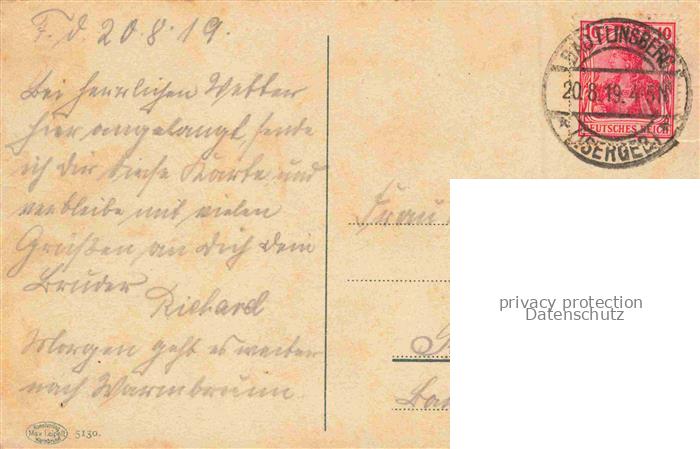 F. d. 20.8.19.
Bei herrlichen Wetter
hier angelangt, sende
ich Dir diese Karte und
verbleibe mit vielen
Grüßen an Dich Dein
Bruder
Richard
Morgen geht es weiter
nach Warmbrunn
Max Leipelt
5130.
10
BAD FLINSBERG
20.8.19. 4-5N
* (ISERGEB.) *
DEUTSCHES REICH
Frau
privacy protection
Datenschutz